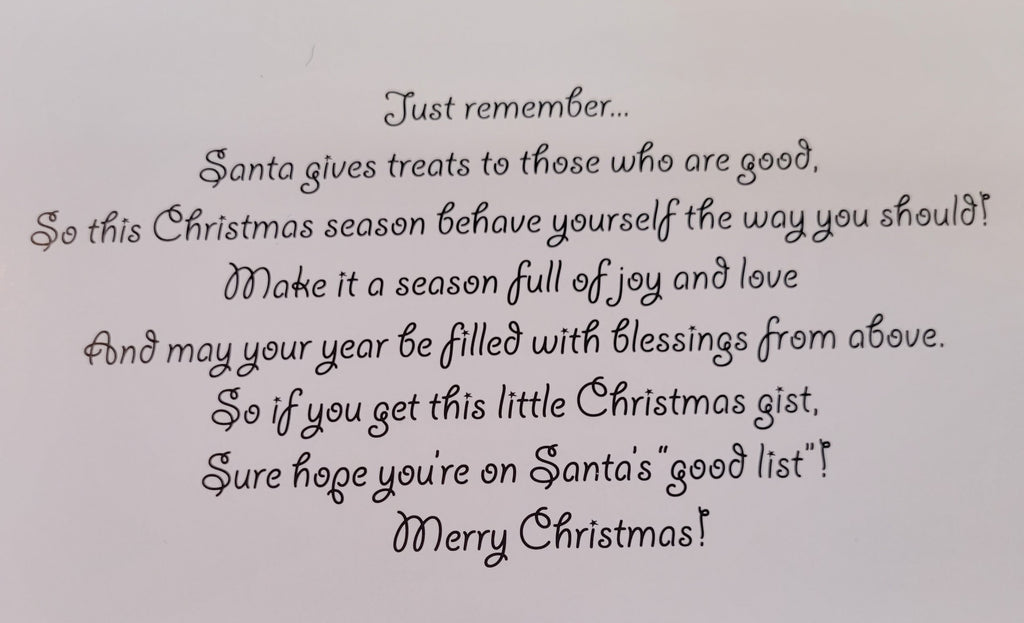 Just remember...
Santa gives treats to those who are good,
So this Christmas season behave yourself the way you should!
Make it a season full of joy and love
And may your year be filled with blessings from above.
So if you get this little Christmas gist,
Sure hope you're on Santa's "good list"!
Merry Christmas!